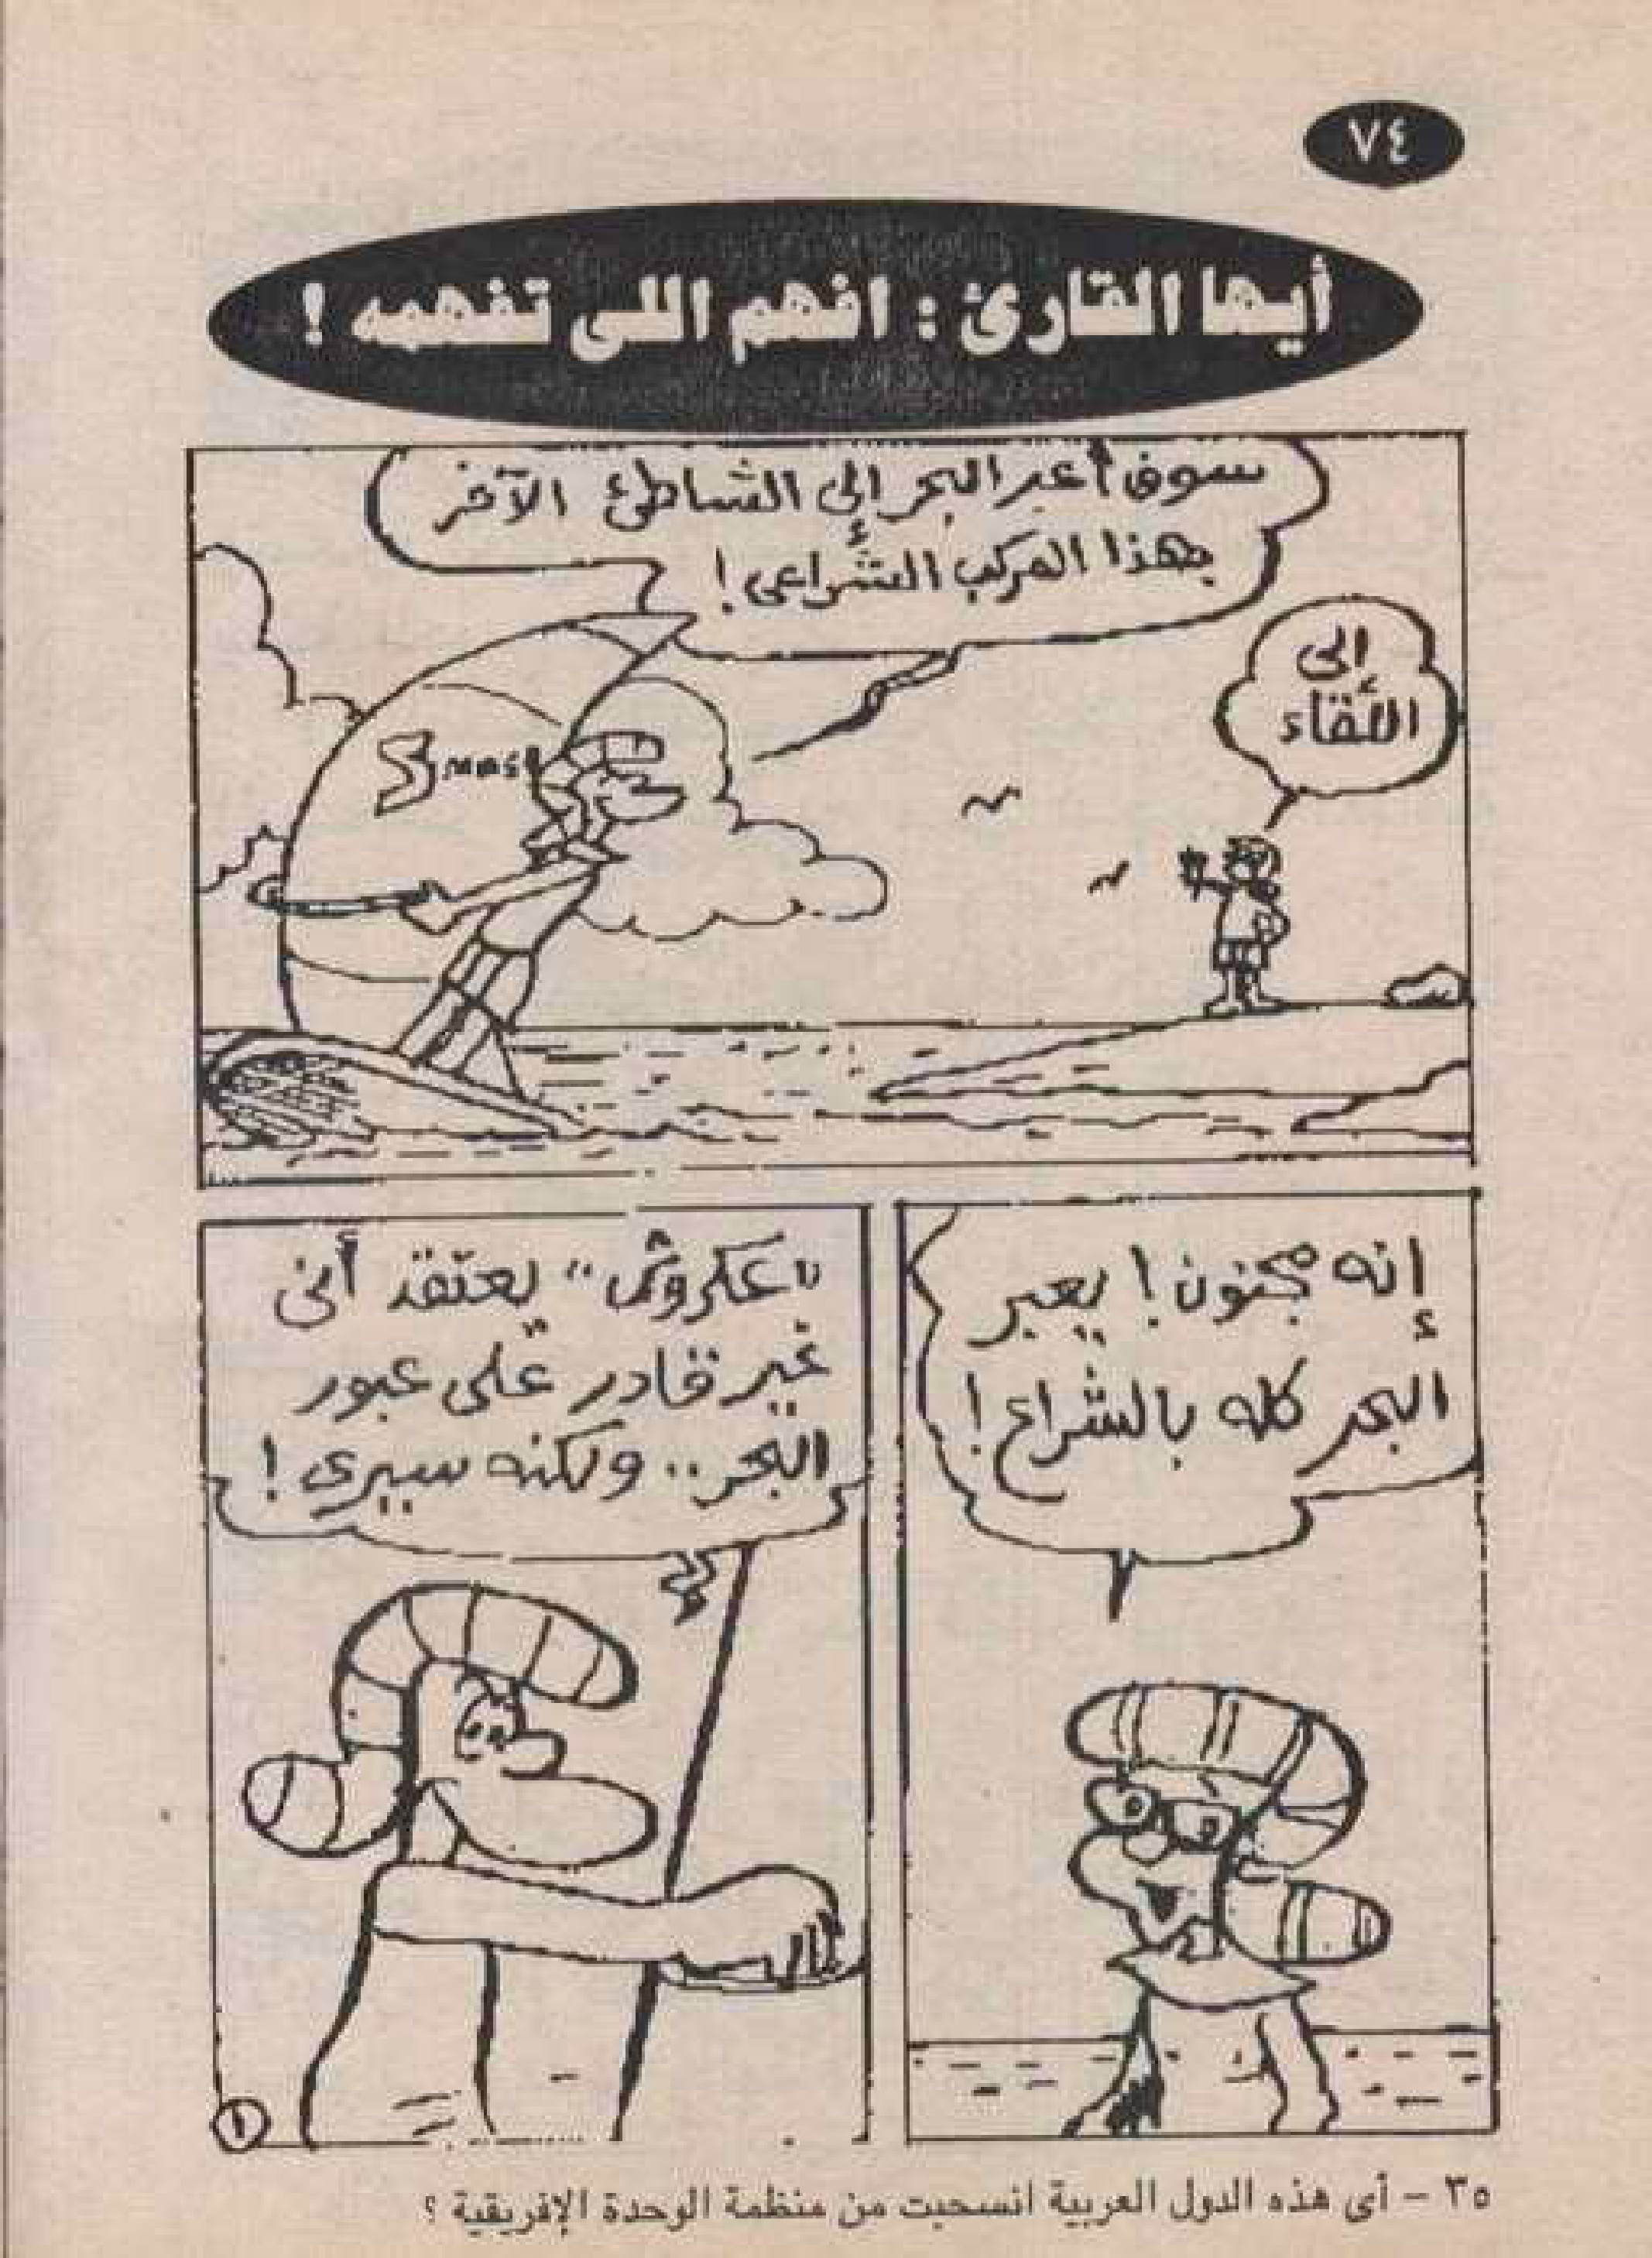 ٧٤
أيها القارئ : افهم اللى تفهمه !
سوف أعبر البحر إلى الشاطئ الآخر
بهذا المركب الشراعى !
إلى
اللقاء
إنه مجنون ! يعبر
البحر كله بالشراع !
"عكروش" يعتقد أنى
غير قادر على عبور
البحر .. ولكنه سيرى !
١
٣٥ – أى هذه الدول العربية انسحبت من منظمة الوحدة الإفريقية ؟